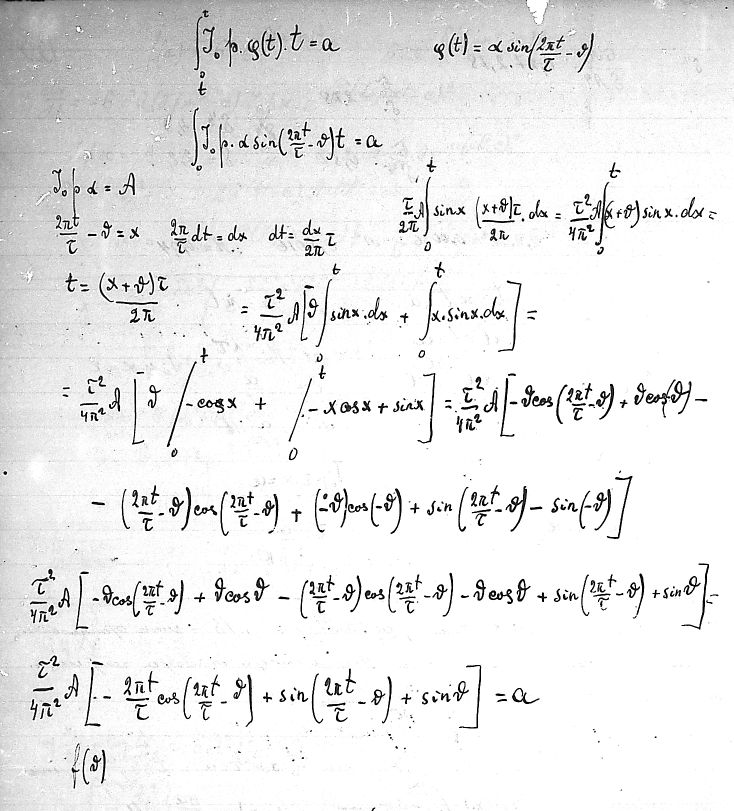 ∫₀ᵗ J₀ p. φ(t). t = a φ(t) = α sin(2πt/τ - ϑ)
∫₀ᵗ J₀ p. α sin(2πt/τ - ϑ) t = a
J₀ p α = A
τ/2π A ∫₀ᵗ sin x (x+ϑ)τ/2π . dx = τ²/4π² A ∫₀ᵗ (x+ϑ) sin x . dx =
2πt/τ - ϑ = x 2π/τ dt = dx dt = dx/2π τ
t = (x+ϑ)τ/2π = τ²/4π² A [ϑ ∫₀ᵗ sin x . dx + ∫₀ᵗ x . sin x . dx] =
= τ²/4π² A [ϑ /₀ᵗ - cos x + /₀ᵗ - x cos x + sin x] = τ²/4π² A [- ϑ cos(2πt/τ - ϑ) + ϑ cos(-ϑ) -
- (2πt/τ - ϑ) cos(2πt/τ - ϑ) + (-ϑ) cos(-ϑ) + sin(2πt/τ - ϑ) - sin(-ϑ)]
τ²/4π² A [- ϑ cos(2πt/τ - ϑ) + ϑ cos ϑ - (2πt/τ - ϑ) cos(2πt/τ - ϑ) - ϑ cos ϑ + sin(2πt/τ - ϑ) + sin ϑ] =
τ²/4π² A [- 2πt/τ cos(2πt/τ - ϑ) + sin(2πt/τ - ϑ) + sin ϑ] = a
f(ϑ)